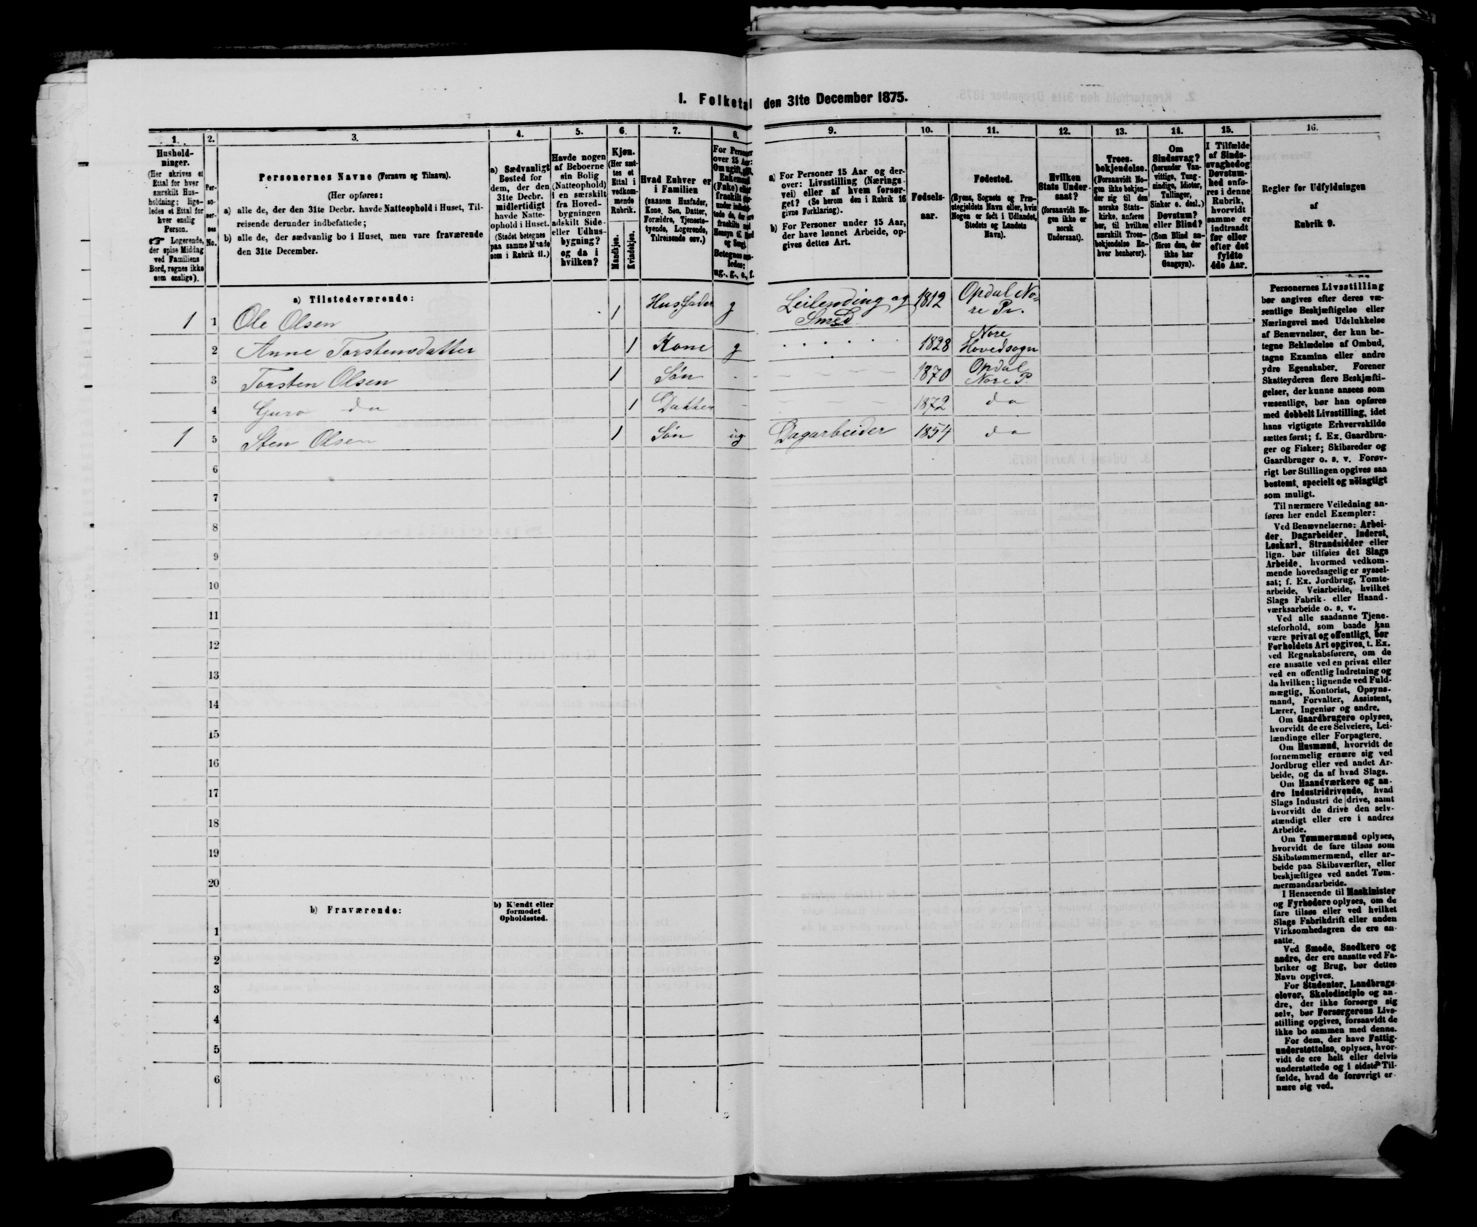 1. Folketal den 31te December 1875.
1. 2. 3. 4. 5. 6. 7. 8. 9. 10. 11. 12. 13. 14. 15. 16.
Husholdninger.
(Her skrives et Ettal for hver særskilt Husholdning; ligeledes et Ettal for hver enslig Person.
☞ Logerende, der spise Middag ved Familiens Bord, regnes ikke som enslige).
Personernes No.
Personernes Navne (Fornavn og Tilnavn).
(Her opføres:
a) alle de, der den 31te Decbr. havde Natteophold i Huset, Tilreisende derunder indbefattede;
b) alle de, der sædvanlig bo i Huset, men vare fraværende den 31te December.
a) Sædvanligt Bosted for dem, der den 31te Decbr. midlertidigt havde Natteophold i Huset.
(Stedet betegnes paa samme Maade som i Rubrik 11.)
Havde nogen af Beboerne sin Bolig (Natteophold) i en særskilt fra Hovedbygningen adskilt Side- eller Udhusbygning? og da i hvilken?
Kjøn.
(Her sættes et Ettal i vedkommende Rubrik.
Mandkjøn.
Kvindekjøn.
Hvad Enhver er i Familien
(saasom Husfader, Kone, Søn, Datter, Forældre, Tjenestetyende, Logerende, Tilreisende osv.)
a) For Personer 15 Aar og derover: Livsstilling (Næringsvei) eller af hvem forsørget? (Se herom den i Rubrik 16 givne Forklaring).
b) For Personer under 15 Aar, der have lønnet Arbeide, opgives dettes Art.
Fødselsaar.
Fødested.
(Byens, Sognets og Præstegjeldets Navn eller, hvis Nogen er født i Udlandet, Stedets og Landets Navn).
Hvilken Stats Undersaat?
(forsaavidt Nogen ikke er norsk Undersaat).
Troesbekjendelse.
(Forsaavidt Nogen ikke bekjender sig til den norske Statskirke, anføres her, til hvilken særskilt Troesbekjendelse Enhver henhører).
Om Sindssvag?
(herunder Vanvittige, Tungsindige, Idioter, Tullinger, Sinker o. desl.)
Døvstum? eller Blind?
(Som Blind anføres den, der ikke har Gangsyn).
I Tilfælde af Sindssvaghed og Døvstumhed anføres i denne Rubrik, hvorvidt samme er indtraadt før eller efter det fyldte 4de Aar.
Regler for Udfyldningen af Rubrik 9.
a) Tilstedeværende:
1 1 Ole Olsen 1 Husfader g Leilending og Smed 1812 Opdal Nore Pr.
2 Anne Torstensdatter 1 Kone g 1828 Nore Hovedsogn
3 Torsten Olsen 1 Søn 1870 Opdal Nore P
4 Guro do 1 Datter 1872 do
1 5 Sten Olsen 1 Søn ug Dagarbeider 1854 do
6
7
8
9
10
11
12
13
14
15
16
17
18
19
20
b) Fraværende:
b) Kjendt eller formodet Opholdssted.
1
2
3
4
5
6
Personernes Livsstilling
bør angives efter deres væ-
sentlige Beskjæftigelse eller
Næringsvei med Udelukkelse
af Benævnelser, der kun be-
tegne Beklædelse af Ombud,
tagne Examina eller andre
ydre Egenskaber. Forener
Skatteyderen flere Beskjæfti-
gelser, der kunne ansees som
væsentlige, bør han opføres
med dobbelt Livsstilling, idet
hans vigtigste Erhvervskilde
sættes først; f. Ex. Gaardbru-
ger og Fisker; Skibsreder og
Gaardbruger o. s. v. Forøv-
rigt bør Stillingen opgives saa
bestemt, specielt og nöiagtigt
som muligt.
Til nærmere Veiledning an-
føres her endel Exempler:
Ved Benævnelserne: Arbei-
der, Dagarbeider, Inderst,
Løskarl, Strandsidder eller
lign. bør tilføies det Slags
Arbeide, hvormed vedkom-
mende hovedsagelig er syssel-
sat; f. Ex. Jordbrug, Tomte-
arbeide, Veiarbeide, hvilket
Slags Fabrik- eller Haand-
værksarbeide o. s. v.
Ved alle saadanne Tjene-
steforhold, som baade kan
være privat og offentligt, bør
Forholdets Art opgives, t. Ex.
ved Regnskabsførere, om de
ere ansatte ved en privat eller
ved en offentlig Indretning og
da hvilken; lignende ved Fuld-
mægtig, Kontorist, Opsyns-
mand, Forvalter, Assistent,
Lærer, Ingeniør og andre.
Om Gaardbrugere oplyses,
hvorvidt de ere Selveiere, Lei-
lændinge eller Forpagtere.
Om Husmænd, hvorvidt de
fornemmelig ernære sig ved
Jordbrug eller ved andet Ar-
beide, og da af hvad Slags.
Om Haandværkere og an-
dre Industridrivende, hvad
Slags Industri de drive, samt
hvorvidt de drive den selv-
stændigt eller ere i andres
Arbeide.
Om Tømmermænd oplyses,
hvorvidt de fare tilsøs som
Skibstømmermænd, eller ar-
beide paa Skibsværfter, eller
beskjæftiges ved andet Tøm-
mermandsarbeide.
I Henseende til Maskinister
og Fyrbødere oplyses, om de
fare tilsøs eller ved hvilket
Slags Fabrikdrift eller anden
Virksomhedsgren de ere an-
satte.
Ved Smede, Snedkere og
andre, der ere ansatte ved Fa-
briker og Brug, bør dettes
Navn opgives.
For Studenter, Landbrugs-
elever, Skoledisciple og an-
dre, der ikke forsørge sig
selv, bør Forsørgerens Livs-
stilling opgives, forsaavidt de
ikke bo sammen med denne.
For dem, der have Fattig-
understøttelse, oplyses, hvor-
vidt de ere helt eller delvis
understøttede og i sidste Til-
fælde, hvad de forøvrigt er-
nære sig ved.